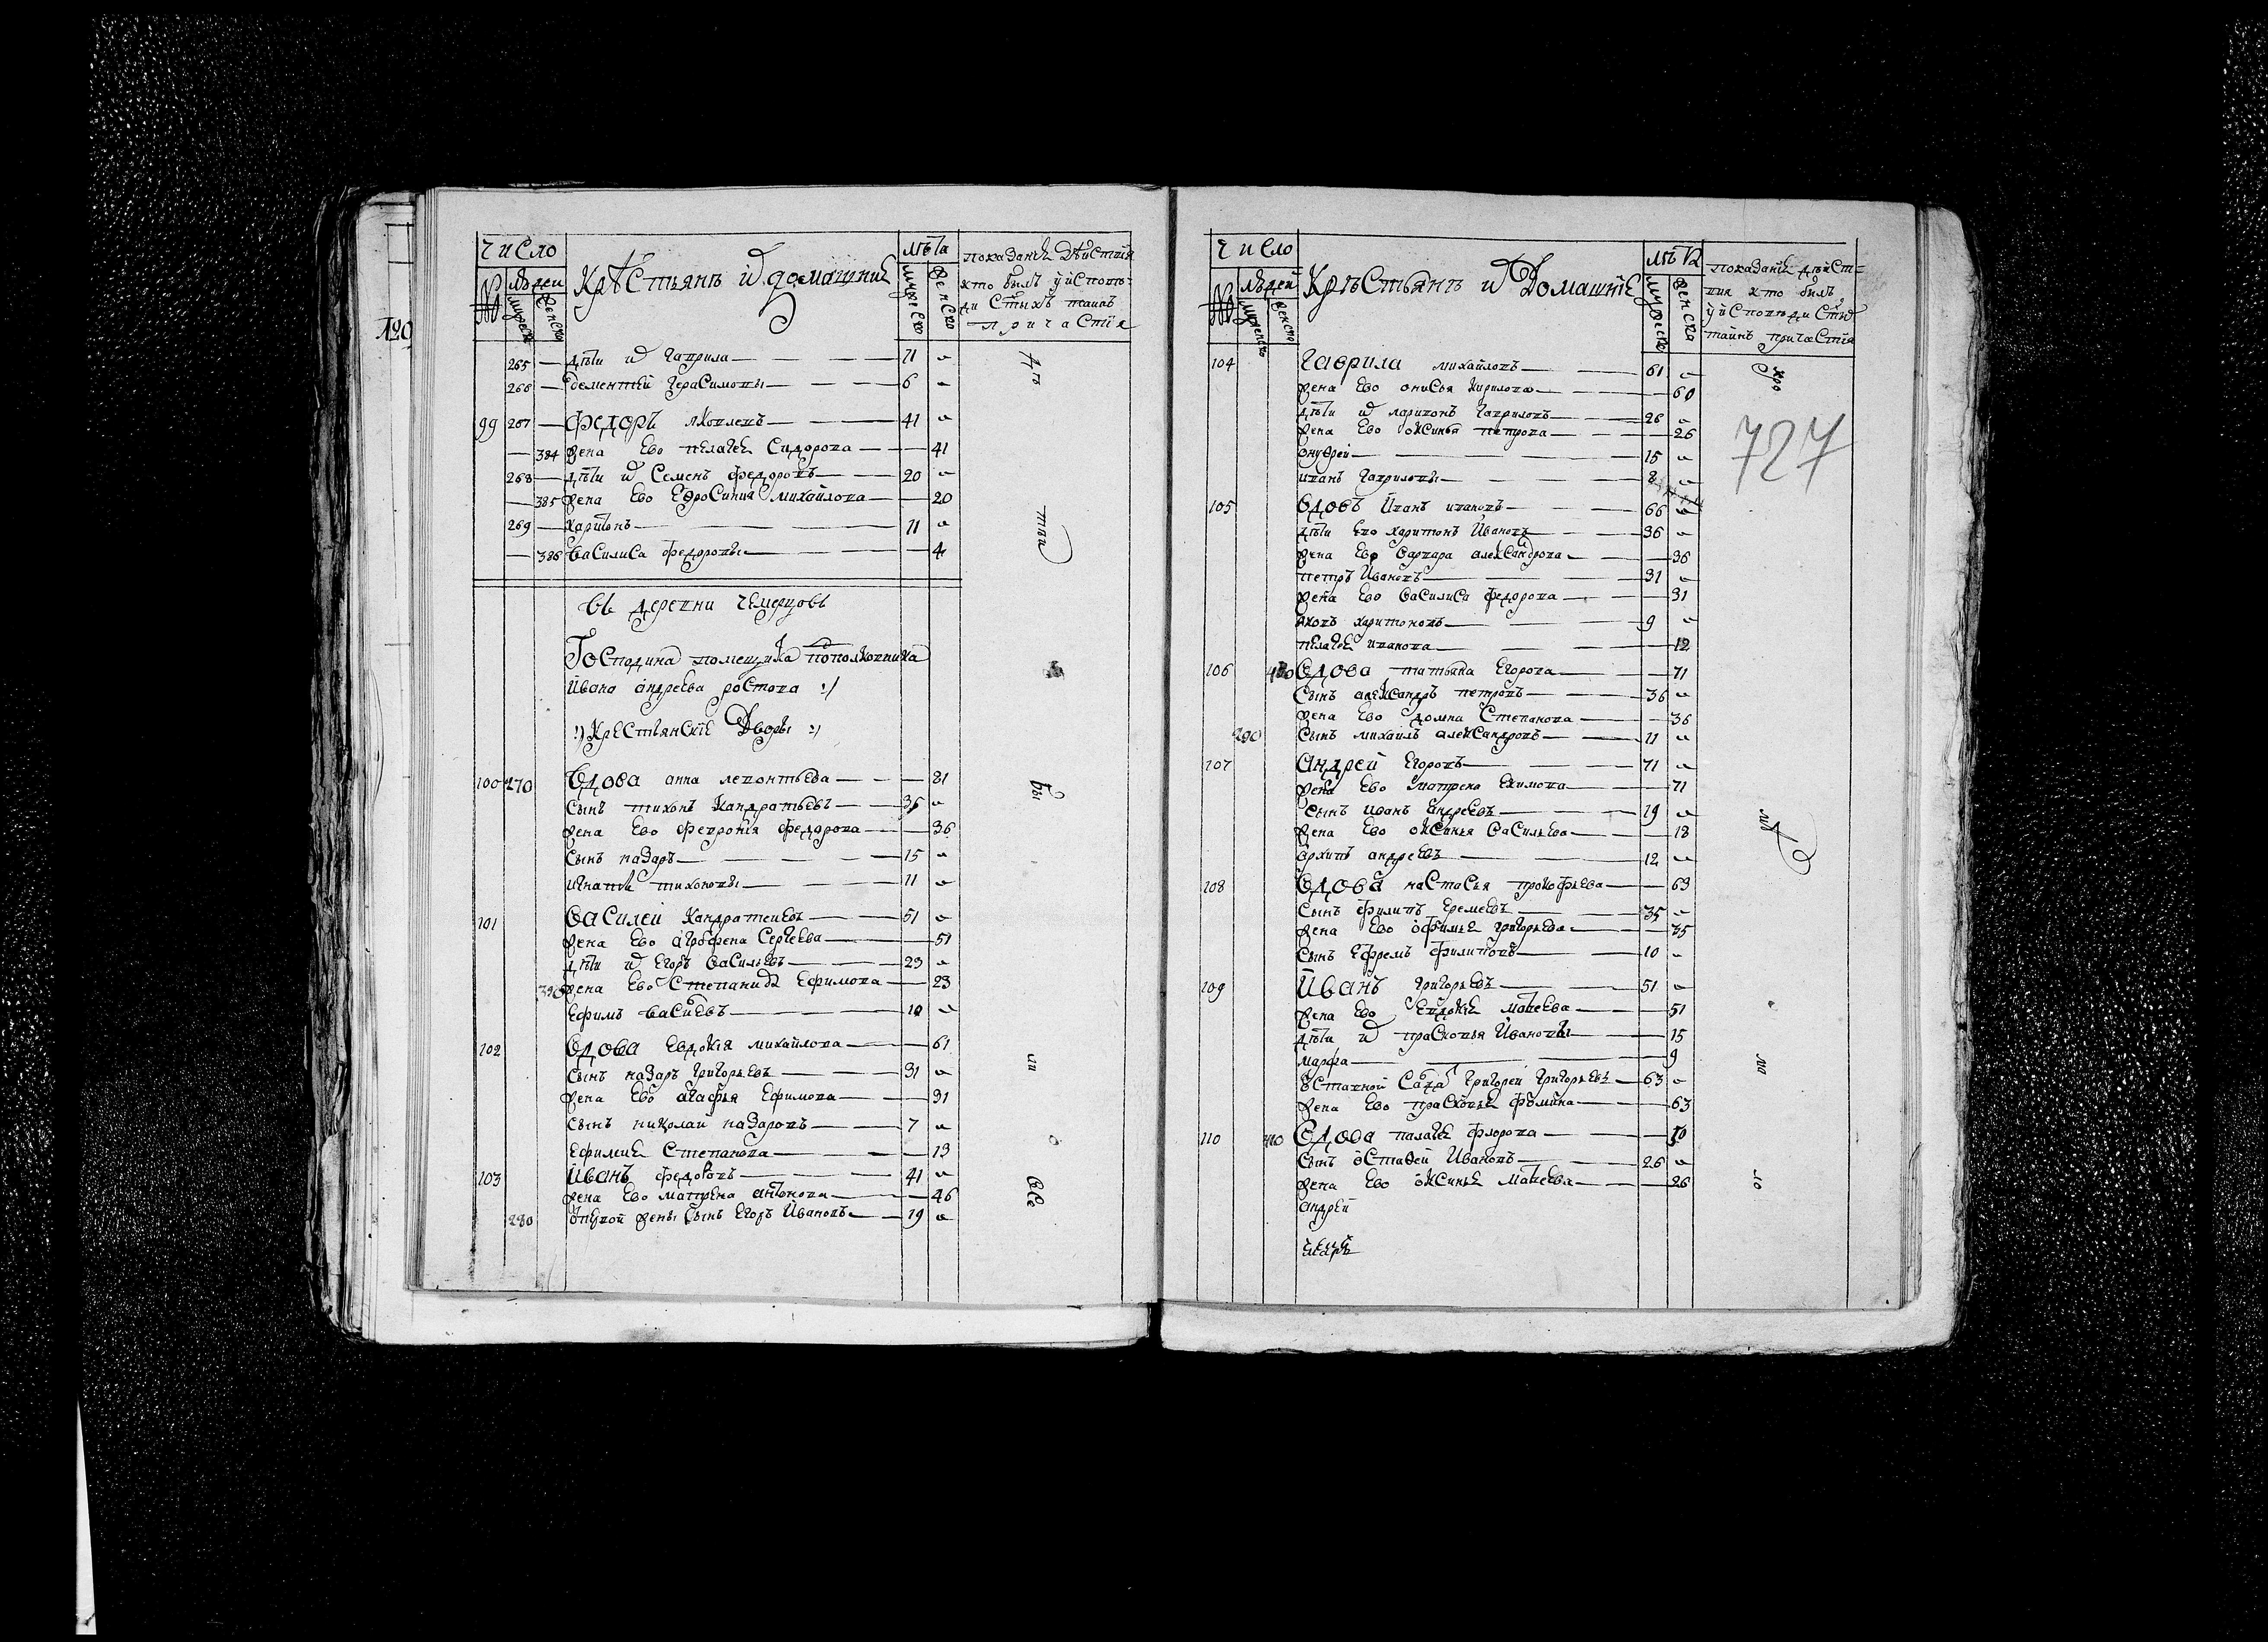 120
число лѣта показанїе дѣйствїя
№ людей Крестьянъ и домашнихъ мужеско женско кто былъ у исповѣ-
мужеско женско ди стыхъ таинъ
причастїя
265 — дѣти и Гаврила — 11 „
266 — дементей Герасимовы — 6 „
99 267 — Федоръ яковлевъ — 41 „
— 384 жена ево пелагея Сидорова — 41
268 — дѣти и Семенъ федоровъ — 20 „
— 385 жена ево Ефросиния михайлова — 20
269 — харитонъ — 11 „
— 386 василиса федоровы — 4
въ деревни чемерцовъ
Господина помещика потполковника
Ивана андреева ростова :/
:/ Крестьянскїе Дворы :/
100 270 Вдова анна леонтьева — 81
сынъ тихонъ Кандратьевъ — 36 „
жена ево феврония федорова — 36
сынъ назаръ — 15 „
игнатъ тихоновы — 11 „
101 Василей Кандратеивъ — 51 „
жена ево аграфена Сергеева — 51
дѣти и егоръ васильевъ — 23 „
390 жена ево Степанида Ефимова — 23
ефимъ василевъ — 10 „
102 Вдова Евдокїя михайлова — 61
сынъ назаръ григорьевъ — 31 „
жена ево агафья Ефимова — 31
сынъ николай назаровъ — 7 „
ефимия Степанова — 13
103 Иванъ федоровъ — 41 „
жена ево матрена антонова — 46
280 ѿ первой жены сынъ Егоръ Ивановъ — 19 „
число лѣта показанїе дѣйст-
№ людей Крестьянъ и Домашнїе мужеско женско вия кто былъ
мужеско женско у исповѣди стыхъ
таинъ причастїя
104 Гаврила михайловъ — 61 „
жена ево онисья кирилова — 60
дѣти и ларионъ гавриловъ — 26 „
жена ево оксинья петрова — 26
онуфрей — 15 „
иванъ гавриловы — 8 „
727
105 Вдовъ Иванъ ивановъ — 66 „
дѣти ево харитонъ Ивановъ — 36 „
жена ево варвара александрова — 36
петръ Ивановъ — 31 „
жена ево василиса федорова — 31
яковъ харитоновъ — 9 „
пелагея иванова — 12
106 400 Вдова татьяна егорова — 71
Сынъ александръ петровъ — 36 „
жена ево домна Степанова — 36
290 Сынъ михаилъ александровъ — 11 „
107 Андрей Егоровъ — 71 „
жена ево матрена екимова — 71
Сынъ иванъ андреевъ — 19 „
жена ево оксинья васильева — 18
архипъ андреевъ — 12 „
108 Вдова настасья прокофьева — 69
Сынъ филипъ еремеевъ — 35 „
жена ево офимья григорьева — 35
Сынъ ефремъ филиповъ — 10 „
109 Иванъ григорьевъ — 51 „
жена ево евдокея матвеева — 51
дѣти и прасковья Ивановы — 15
марфа — 9
Григорей григорьевъ — 63 „
жена ево прасковья фомина — 63
110 410 Вдова палагея флорова — 70
Сынъ остафей Ивановъ — 26 „
жена ево оксинья матвеева — 26
андрей